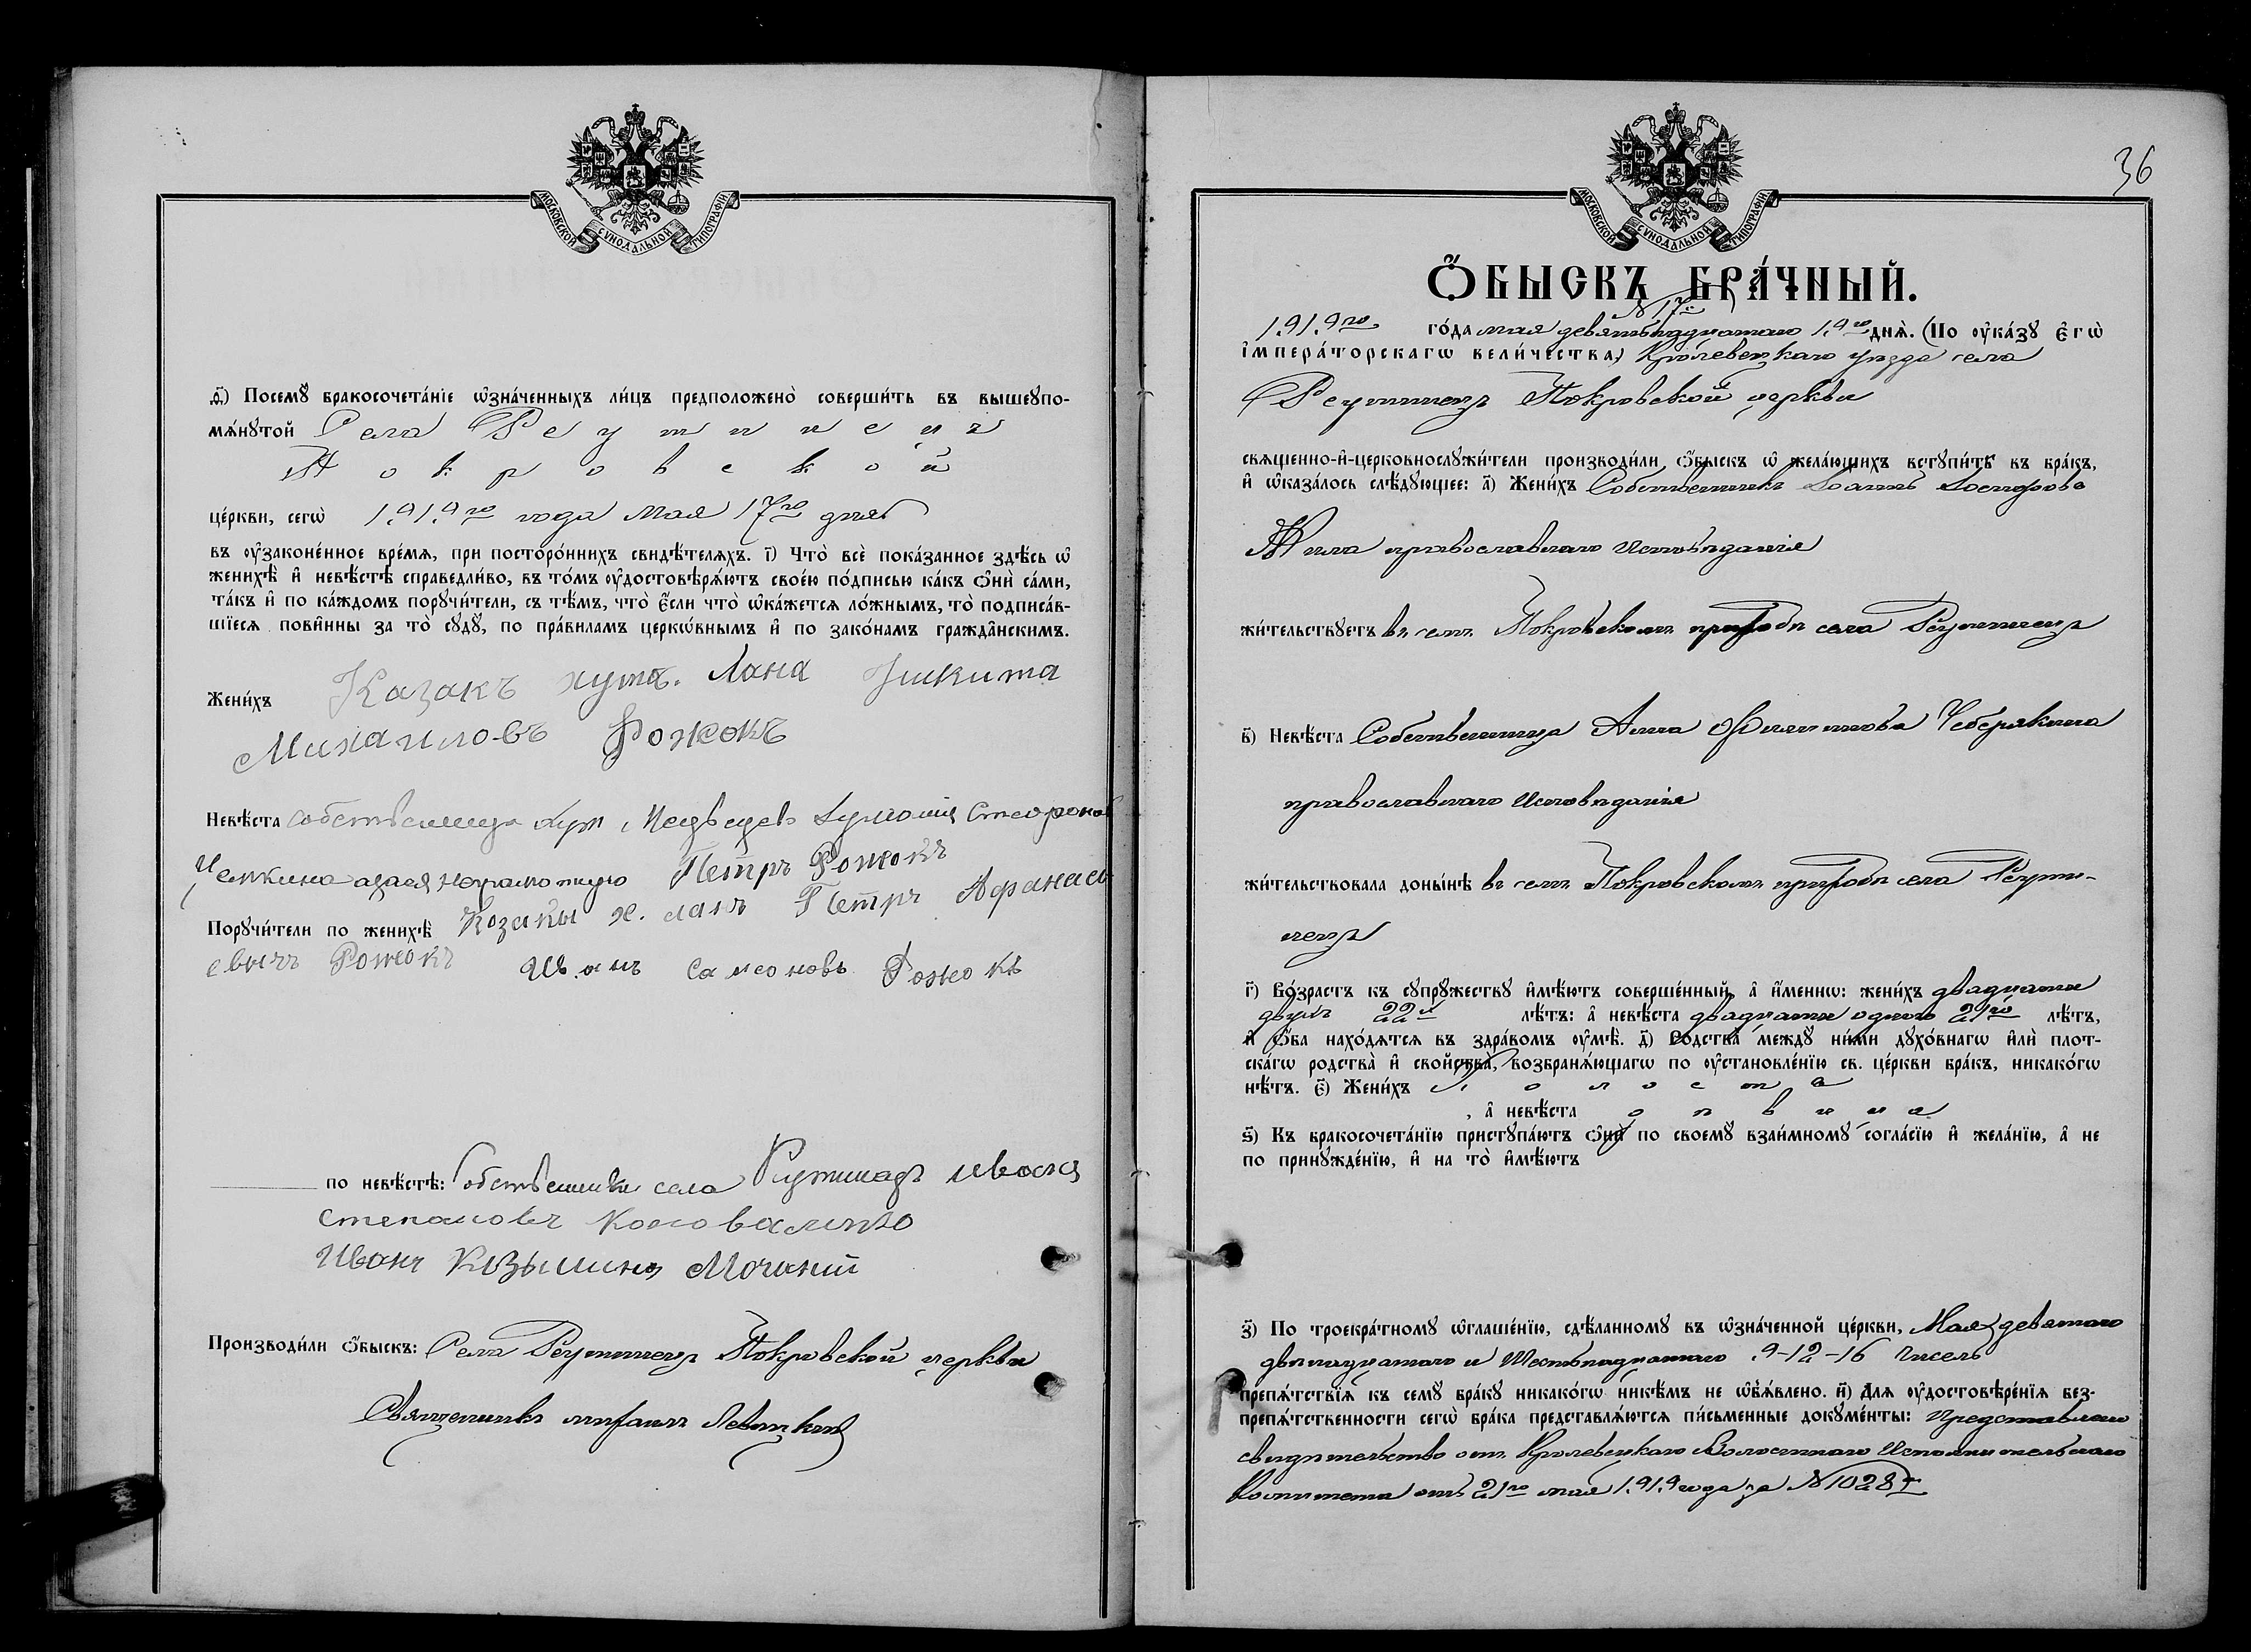 МОСКОВСКОЙ СУНОДАЛЬНОЙ ТИПОГРАФІИ
ѳ҃) Посемꙋ̀ бракосочета́ніе ѡ҆зна́ченныхъ ли́цъ предположено̀ соверши́ть въ вышеꙋпо-
мѧ́нꙋтой Села Реутинецъ
Покровской
це́ркви, сегѡ̀ 1919го года мая 17го дня
въ ᲂу҆законе́нное вре́мѧ, при посторо́ннихъ свидѣ́телѧхъ. і҃) Что̀ всѐ пока́занное здѣ́сь ѡ҆
женихѣ̀ и҆ невѣ́стѣ справедли́во, въ то́мъ ᲂу҆достовѣрѧ́ютъ свое́ю по́дписью ка́къ ѻ҆нѝ са́ми,
та́къ и҆ по ка́ждомъ порꙋчи́тели, съ тѣ́мъ, что̀ є҆́сли что̀ ѡ҆ка́жется ло́жнымъ, то̀ подписа́в-
шїесѧ пови́нны за то̀ сꙋдꙋ̀, по пра́виламъ церкѡ́внымъ и҆ по зако́намъ гражда́нскимъ.
Жени́хъ Казакъ хута. Лана Никита
Михаиловъ Рожокъ
Невѣ́ста собственица хут Медведев Стефанов
неграмотную Петръ Рожокъ
Порꙋчи́тели по женихѣ̀ Козаки х. ланъ Петръ Афанась
евичъ Рожокъ Иванъ Самсоновъ Рожокъ
по невѣ́стѣ: Собственики села Иванъ
Степановъ Коновалико
Иванъ Козьминъ
Производи́ли ѻ҆́быскъ: Села Реутинецъ Покровской церкви
Священникъ Михаилъ Левицкій
36
МОСКОВСКОЙ СУНОДАЛЬНОЙ ТИПОГРАФІИ
Ѻ҆́БЫСКЪ БРА́ЧНЫЙ.
№ 17й
1919го го́да мая девятьнадцатаго 19го днѧ̀. (По ᲂу҆ка́зꙋ є҆гѡ̀
і҆мпера́торскагѡ вели́чества) Кролевецкаго уѣзда села
Реутинецъ Покровской церкви
свѧщенно-и҆-церковнослꙋжи́тели производи́ли ѻ҆́быскъ ѡ҆ жела́ющихъ встꙋпи́ть въ бра́къ,
и҆ ѡ҆каза́лось слѣ́дꙋющее: а҃) Жени́хъ Собственникъ Іоаннъ
православнаго исповѣданія
жи́тельствꙋетъ въ семъ Покровскомъ приходѣ села Реутинецъ
в҃) Невѣ́ста Собственница Анна Филиппова Чеберякина
православнаго исповѣданія
жи́тельствовала доны́нѣ въ семъ Покровскомъ приходѣ села Реути-
нецъ
г҃) Во́зрастъ къ сꙋпрꙋ́жествꙋ и҆мѣ́ютъ соверше́нный, а҆ и҆́менно: жени́хъ двадцати
двухъ 22хъ лѣ́тъ: а҆ невѣ́ста двадцати одного 21го лѣ́тъ,
и҆ ѻ҆́ба нахо́дѧтсѧ въ здра́вомъ ᲂу҆мѣ̀. д҃) Родства̀ междꙋ̀ ни́ми дꙋхо́внагѡ и҆лѝ плот-
ска́гѡ родства̀ и҆ свойства̀, возбранѧ́ющагѡ по ᲂу҆становле́нїю св. це́ркви бра́къ, никако́гѡ
нѣ́тъ. є҃) Жени́хъ холостъ
, а҆ невѣ́ста дѣвица
ѕ҃) Къ бракосочета́нїю пристꙋпа́ютъ ѻ҆нѝ по своемꙋ̀ взаи́мномꙋ согла́сїю и҆ жела́нїю, а҆ не
по принꙋжде́нїю, и҆ на то̀ и҆мѣ́ютъ
з҃) По троекра́тномꙋ ѡ҆глаше́нїю, сдѣ́ланномꙋ въ ѡ҆зна́ченной це́ркви, Мая девятаго
двѣнадцатаго и Шестьнадцатаго 9-12-16 чиселъ
препѧ́тствїѧ къ семꙋ̀ бра́кꙋ никако́гѡ никѣ́мъ не ѡ҆б̾ѧ́влено. и҃) Длѧ ᲂу҆достовѣре́нїѧ без-
препѧ́тственности сегѡ̀ бра́ка представлѧ́ютсѧ пи́сьменные докꙋме́нты: представлено
свидѣтельство отъ Кролевецкаго Волостнаго Исполнительнаго
Комитета отъ 21го мая 1919 года за № 1028